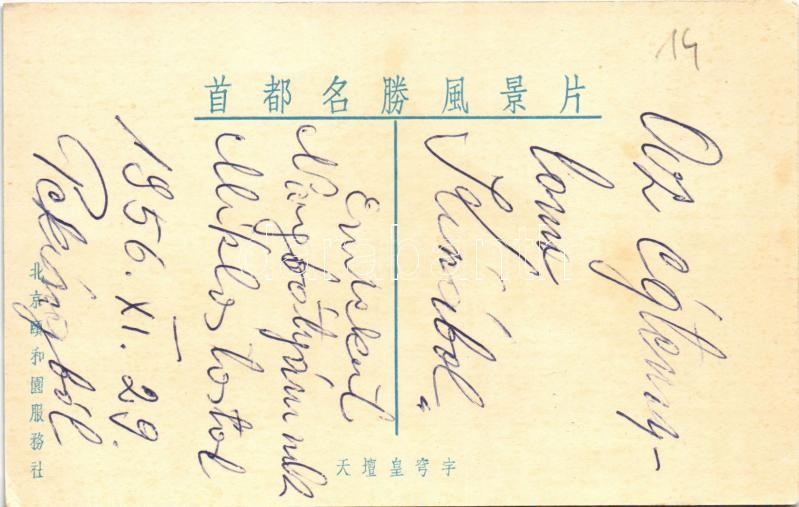 14
首都名勝風景片
Az égtemp-
loma
Kínából.
Emlékül
Miklostostol
1956. XI. 29.
Pekingből
天壇皇穹宇
北京頤和園服務社
darabanth